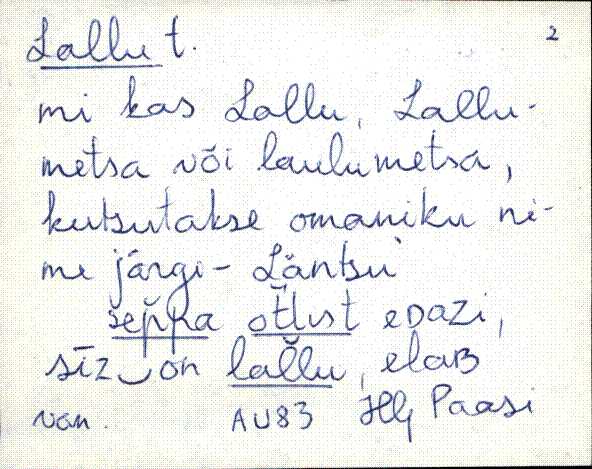 Lallu t. 2
mi kas Lallu, Lallu-
metsa või laulumetsa,
kutsutakse omaniku ni-
me järgi - Läntsu
šep̆pa ot̆lᴜst eᴅazi,
sīz‿on lal̆lu, elaʙ
van. AU83 Hlj Paasi